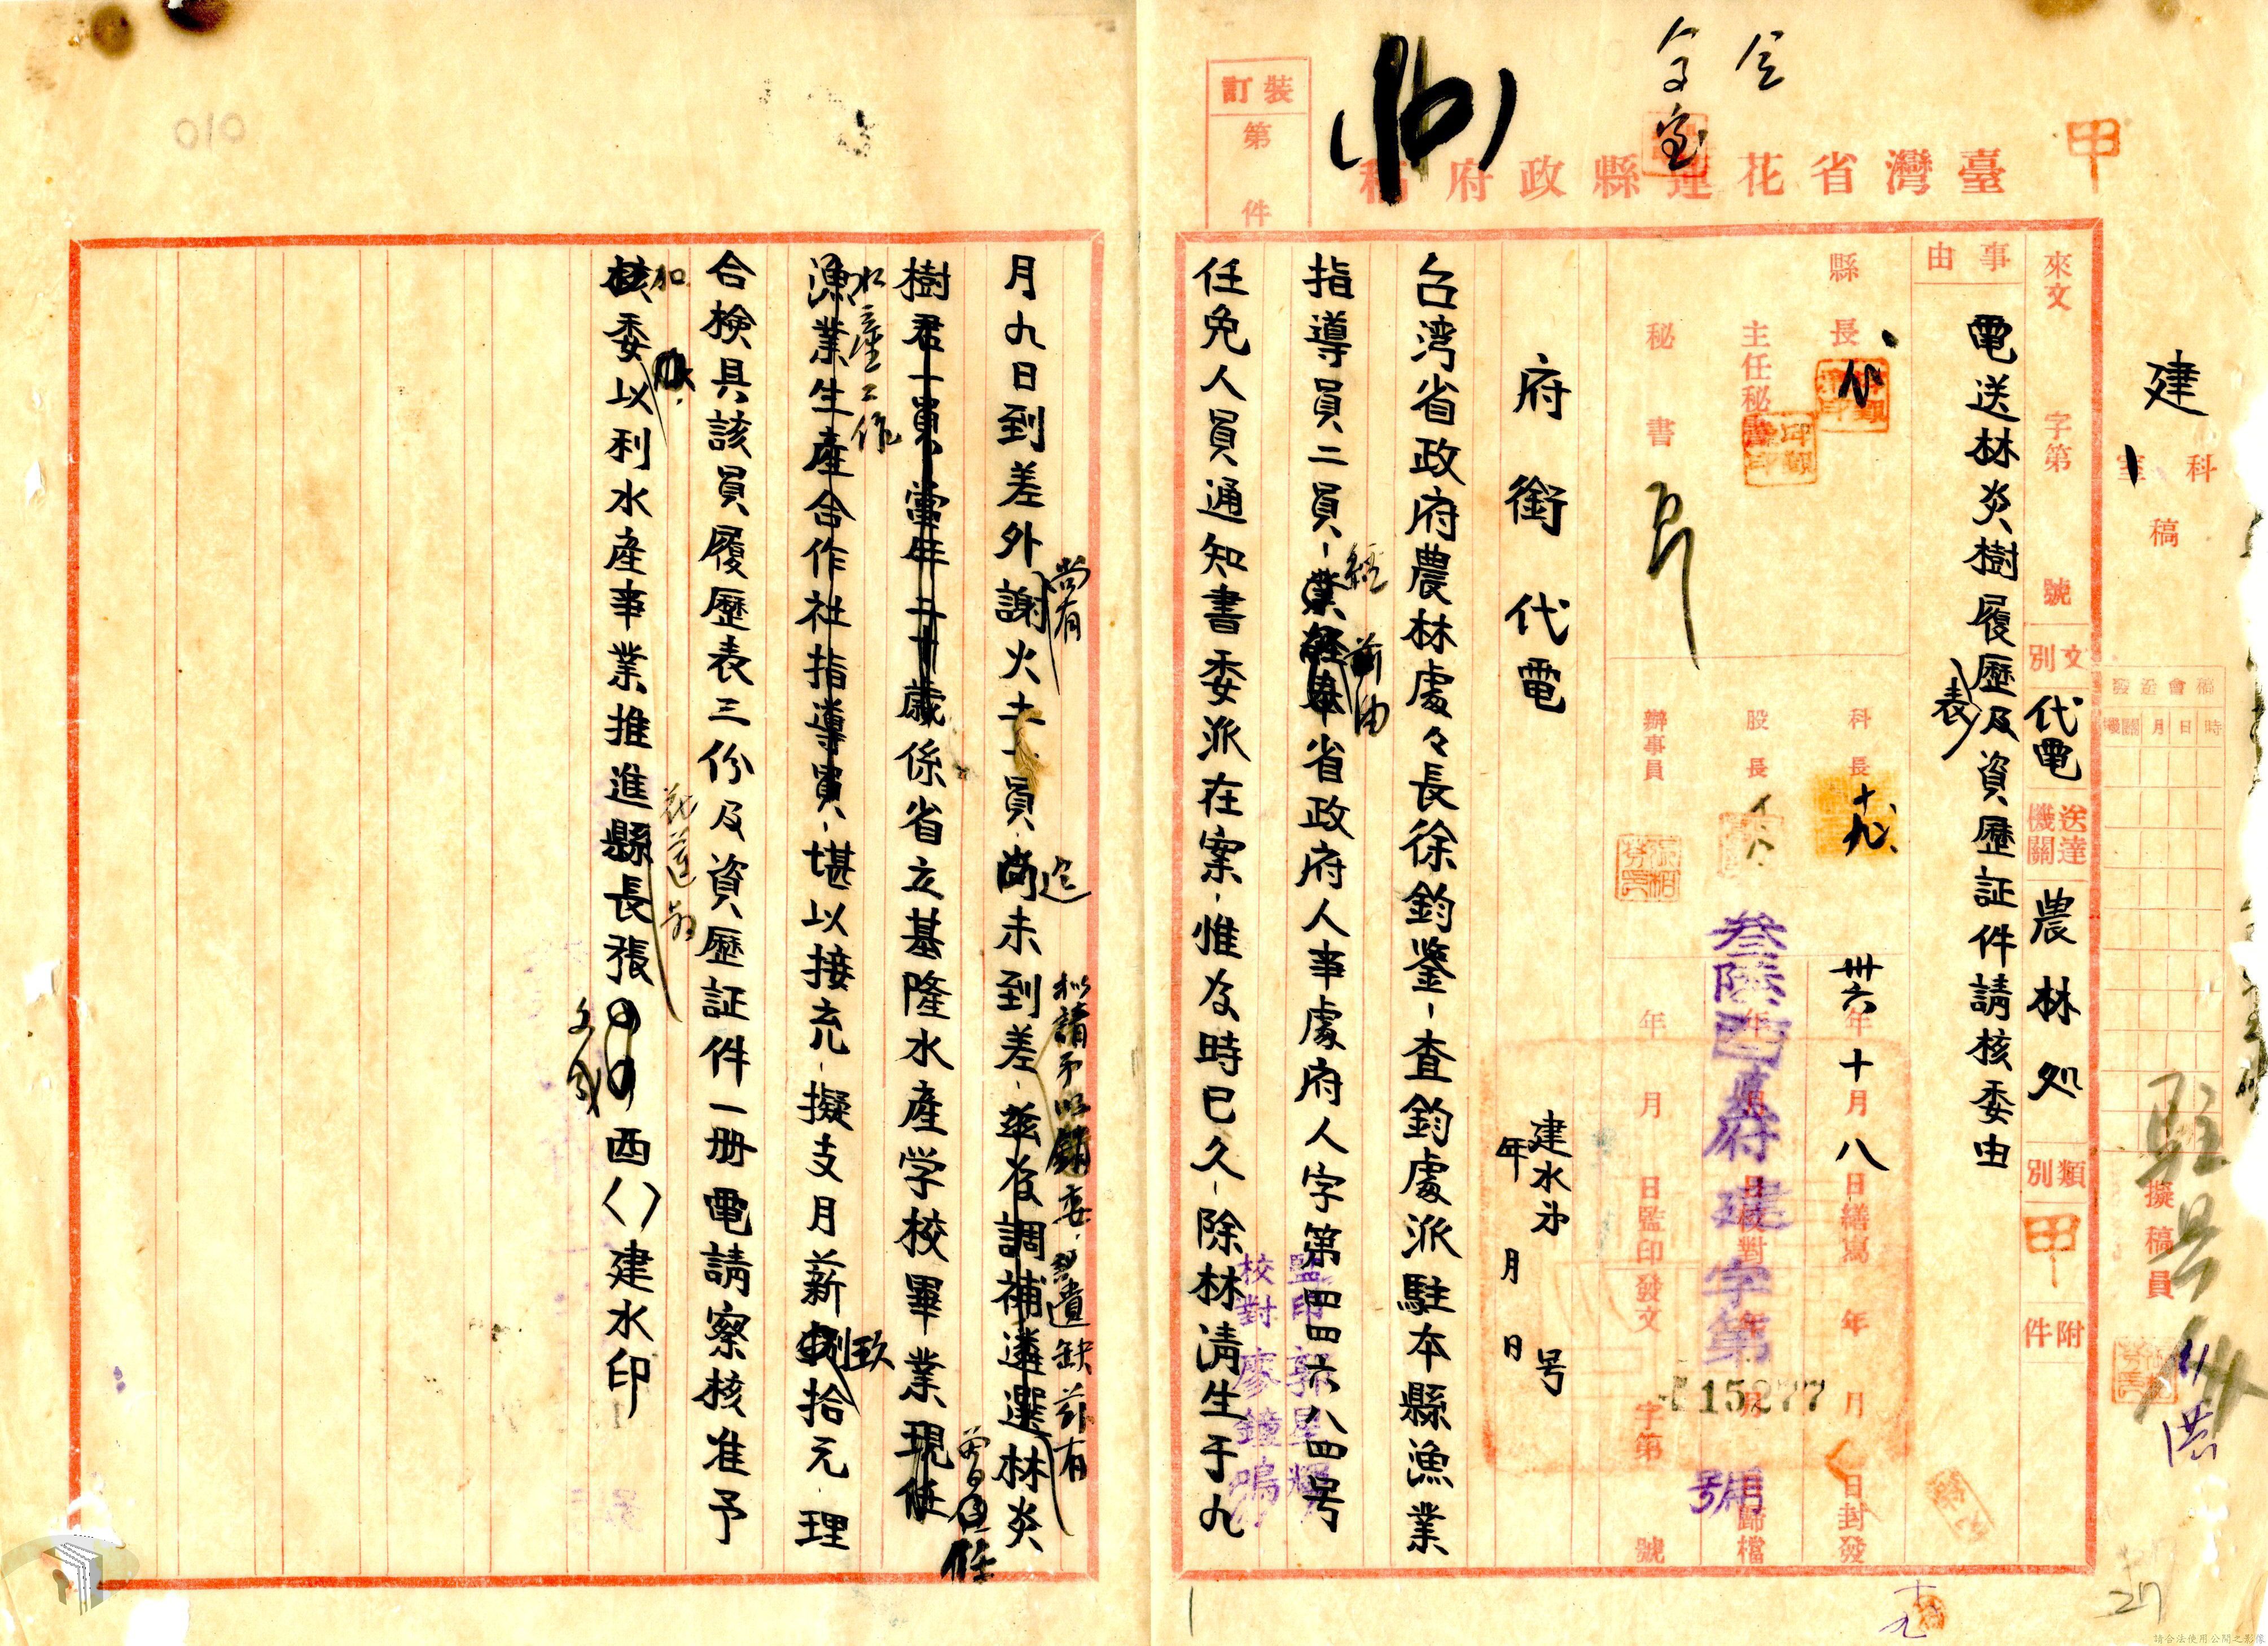 甲
臺灣省花蓮縣政府稿
裝訂
第 件
建
科
室
稿
擬稿員
駐县
會
來文 字第 號
文別 代電
送達機關 農林处
類別 甲
附件
事由
電送林炎樹履歷及資歷証件請核委由
表
縣長
主任秘書
秘書
科長
股長
辦事員
卅六年十月八日繕寫
年 月 日封發
年 月 日校對
年 月 日歸檔
年 月 日監印
發文 字第 號
叁陸酉 府建字第
15277
號
府銜代電
建水第 号
年 月 日
台湾省政府農林處々長徐鈞鑒查鈞處派駐本縣漁業
指導員二員業經奉省政府人事處府人字第四四六八四号
經
前由
任免人員通知書委派在案惟為時已久除林清生于九
監印郭星輝
校對廖鐘鳴
月九日到差外謝火土一員尚未到差茲為調補遴選林炎
尚有
迄
拟請予以銷委 遺缺茲有
樹君一員當年二十歲係省立基隆水產学校畢業現任
曾任
漁業生產合作社指導員堪以接充擬支月薪 拾元理
水產工作
玖
合検具該員履歷表三份及資歷証件一冊電請察核准予
核委以利水產事業推進縣長張 酉〈〉建水印
加
花蓮縣
文成
010
27
請合法使用公開之影像